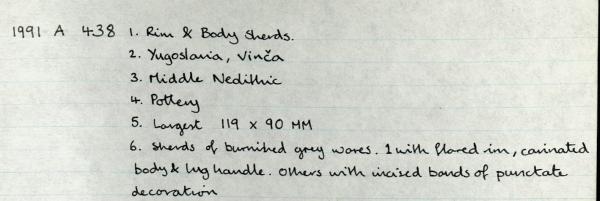 1991 A 438 1. Rim & Body Sherds.
2. Yugoslavia, Vinča
3. Middle Neolithic
4. Pottery
5. Largest 119 x 90 MM
6. Sherds of burnished grey wares. 1 with flared rim, carinated
body & lug handle. Others with incised bands of punctate
decoration